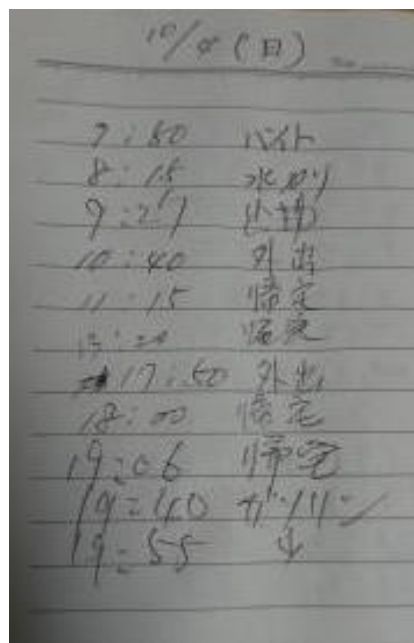 10/ (日)
7:50 バイト
8:15 水やり
9:27
10:40 外出
11:15 帰宅
:20
17:50 外出
18:00 帰宅
19:06 帰宅
19:40 ガソリン
19:55 ↓